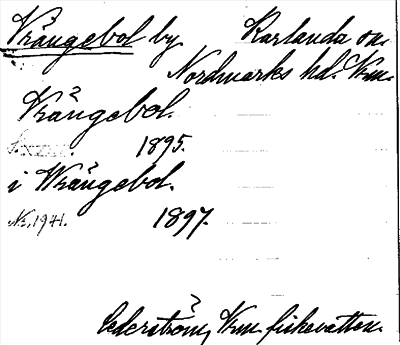 Vrångebol by Karlanda sn.
Nordmarks hd. Vrm.
Vrångebol.
1895.
i Vrångebol.
Nr. 1941. 1897.
Cederström, Vrm. fiskevatten.